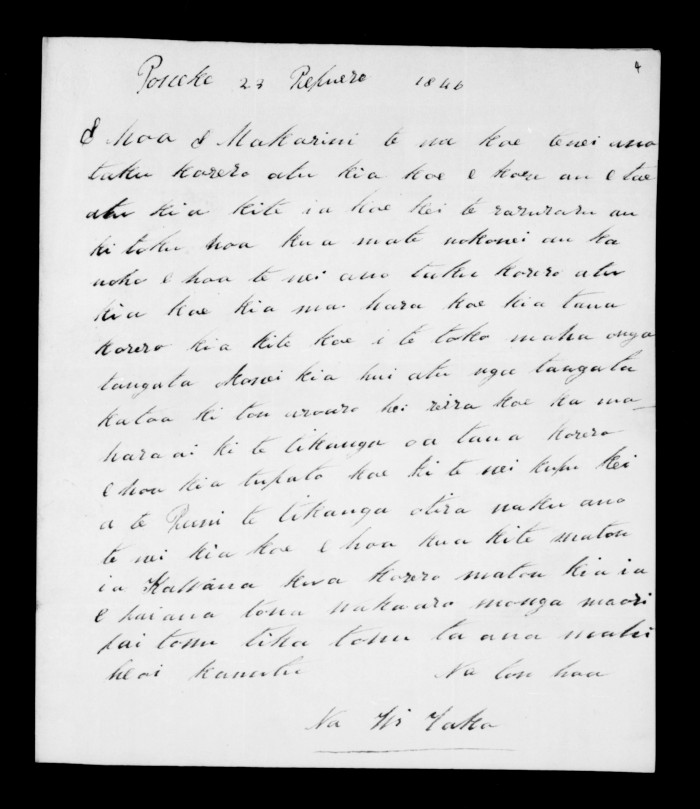 4
23 Pepuere 1846
E hoa E Makarini te na koe tenei ano
taku korero atu kia koe e kore au e tae
atu kia kite ia koe kei te raruraru au
ki toku hoa kua mate nokonei au ka
noho e hoa te nei ano taku korero atu
kia koe kia ma hara koe kia tana
korero kia kite koe i te toko maha onga
tangata kia hui atu nga tangata
katoa ki tou aroaro hei reira koe ka ma-
hara ai ki te tikanga oa tana korero
e hoa kia tupato koe ki te nei kupu kei
a te te tikanga otira naku ano
te nei kia koe e hoa kua kite matou
ia kua korero matou kia ia
e pai ana tona wakaaro monga maori
pai tonu tika tonu ta ana mahi
heoi kamutu Na tou hoa
Na Wi Tako